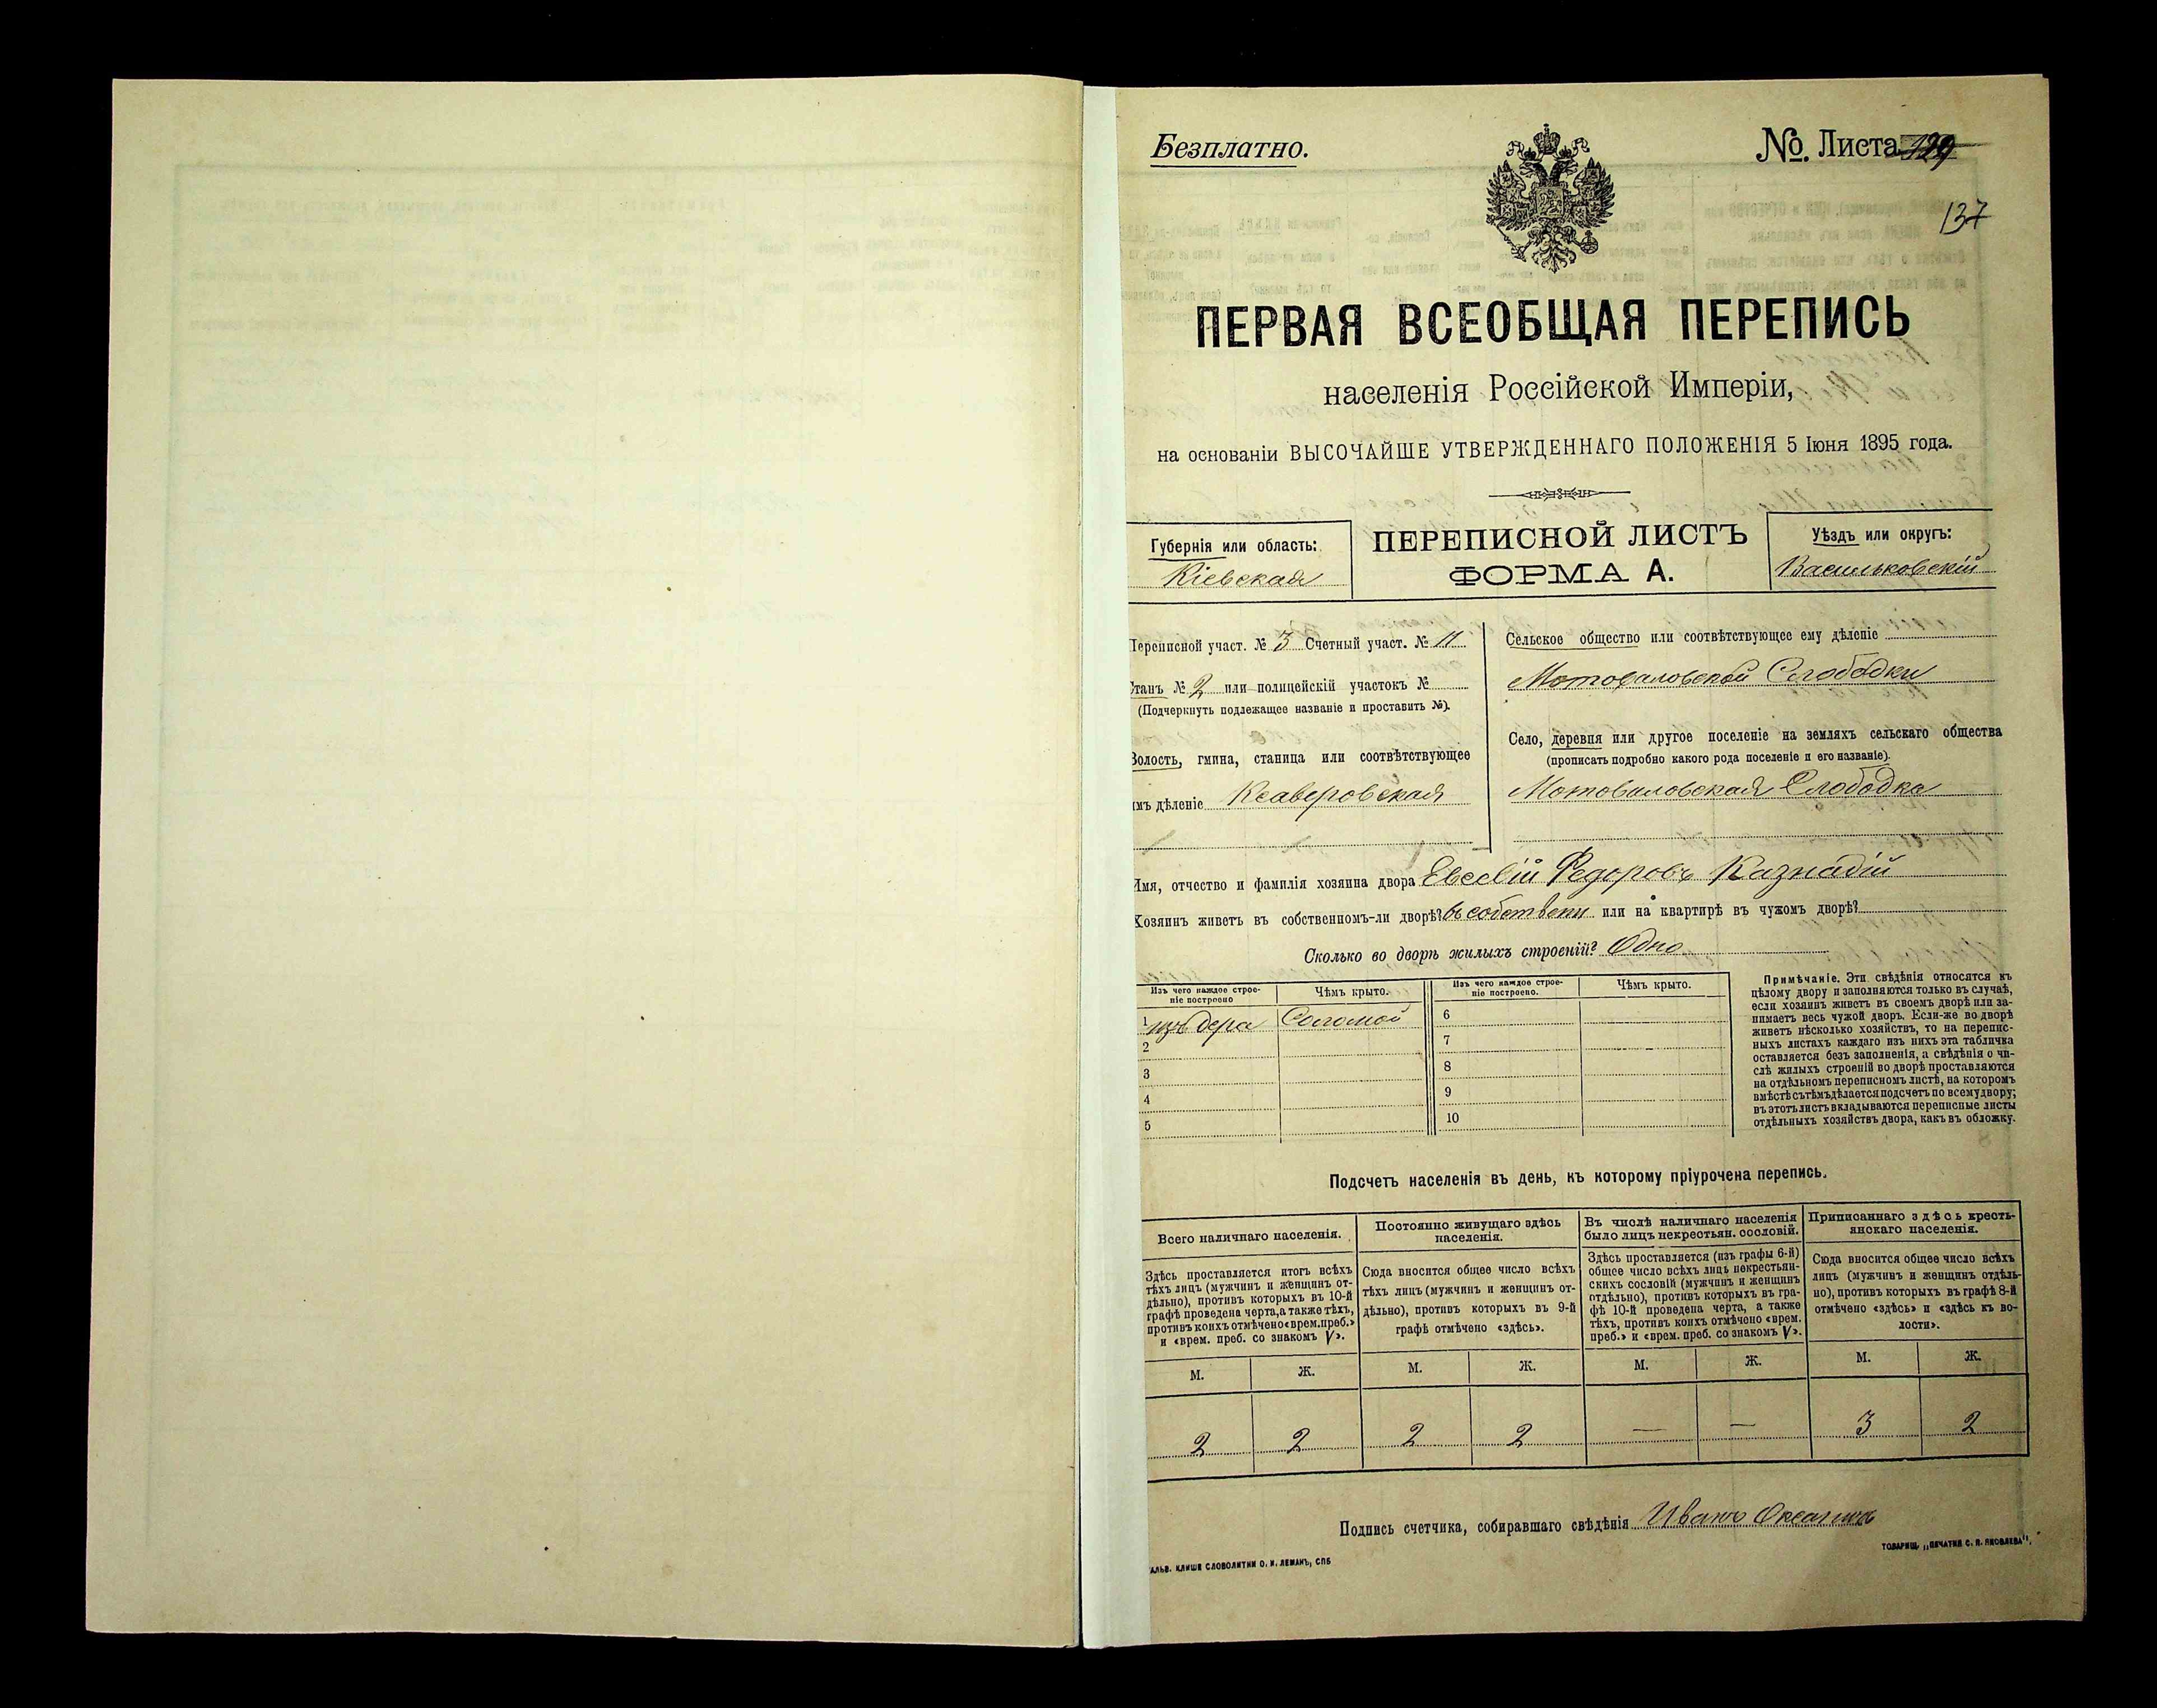 Безплатно.
№. Листа 129
137
ПЕРВАЯ ВСЕОБЩАЯ ПЕРЕПИСЬ
населенія Россійской Имперіи,
на основаніи ВЫСОЧАЙШЕ УТВЕРЖДЕННАГО ПОЛОЖЕНІЯ 5 Іюня 1895 года.
Губернія или область:
Кіевская
ПЕРЕПИСНОЙ ЛИСТЪ
ФОРМА А.
Уѣздъ или округъ:
Васильковскій
Переписной участ. № 3 Счетный участ. № 11
Станъ № 2 или полицейскій участокъ №
(Подчеркнуть подлежащее названіе и проставить №).
Волость, гмина, станица или соотвѣтствующее
имъ дѣленіе Ксаверовская
Сельское общество или соотвѣтствующее ему дѣленіе
Мотовиловской Слободки
Село, деревня или другое поселеніе на земляхъ сельскаго общества
(прописать подробно какого рода поселеніе и его названіе).
Мотовиловская Слободка
Имя, отчество и фамилія хозяина двора Евсевій Федоровъ Казнадій
Хозяинъ живетъ въ собственномъ-ли дворѣ? въ собствен или на квартирѣ въ чужомъ дворѣ?
Сколько во дворѣ жилыхъ строеній? Одно
Изъ чего каждое строе-
ніе построено
Чѣмъ крыто.
Изъ чего каждое строе-
ніе построено.
Чѣмъ крыто.
1 изъ дера Соломой
2
3
4
5
6
7
8
9
10
Примѣчаніе. Эти свѣдѣнія относятся къ
цѣлому двору и заполняются только въ случаѣ,
если хозяинъ живетъ въ своемъ дворѣ или за-
нимаетъ весь чужой дворъ. Если-же во дворѣ
живетъ нѣсколько хозяйствъ, то на перепис-
ныхъ листахъ каждаго изъ нихъ эта табличка
оставляется безъ заполненія, а свѣдѣнія о чи-
слѣ жилыхъ строеній во дворѣ проставляются
на отдѣльномъ переписномъ листѣ, на которомъ
вмѣстѣ съ тѣмъ дѣлается подсчетъ по всему двору;
въ этотъ листъ вкладываются переписные листы
отдѣльныхъ хозяйствъ двора, какъ въ обложку.
Подсчетъ населенія въ день, къ которому пріурочена перепись.
Всего наличнаго населенія.
Здѣсь проставляется итогъ всѣхъ
тѣхъ лицъ (мужчинъ и женщинъ от-
дѣльно), противъ которыхъ въ 10-й
графѣ проведена черта, а также тѣхъ,
противъ коихъ отмѣчено «врем. преб.»
и «врем. преб. со знакомъ V».
Постоянно живущаго здѣсь
населенія.
Сюда вносится общее число всѣхъ
тѣхъ лицъ (мужчинъ и женщинъ от-
дѣльно), противъ которыхъ въ 9-й
графѣ отмѣчено «здѣсь».
Въ числѣ наличнаго населенія
было лицъ некрестьян. сословій.
Здѣсь проставляется (изъ графы 6-й)
общее число всѣхъ лицъ некрестьян-
скихъ сословій (мужчинъ и женщинъ
отдѣльно), противъ которыхъ въ гра-
фѣ 10-й проведена черта, а также
тѣхъ, противъ коихъ отмѣчено «врем.
преб.» и «врем. преб. со знакомъ V».
Приписаннаго здѣсь кресть-
янскаго населенія.
Сюда вносится общее число всѣхъ
лицъ (мужчинъ и женщинъ отдѣль-
но), противъ которыхъ въ графѣ 8-й
отмѣчено «здѣсь» и «здѣсь къ во-
лости».
М. Ж. М. Ж. М. Ж. М. Ж.
2 2 2 2 — — 3 2
Подпись счетчика, собиравшаго свѣдѣнія Иванъ
АЛЬВ. КЛИШЕ СЛОВОЛИТНИ О. И. ЛЕМАНЪ, СПБ
ТОВАРИЩ. „ПЕЧАТНЯ С. П. ЯКОВЛЕВА".